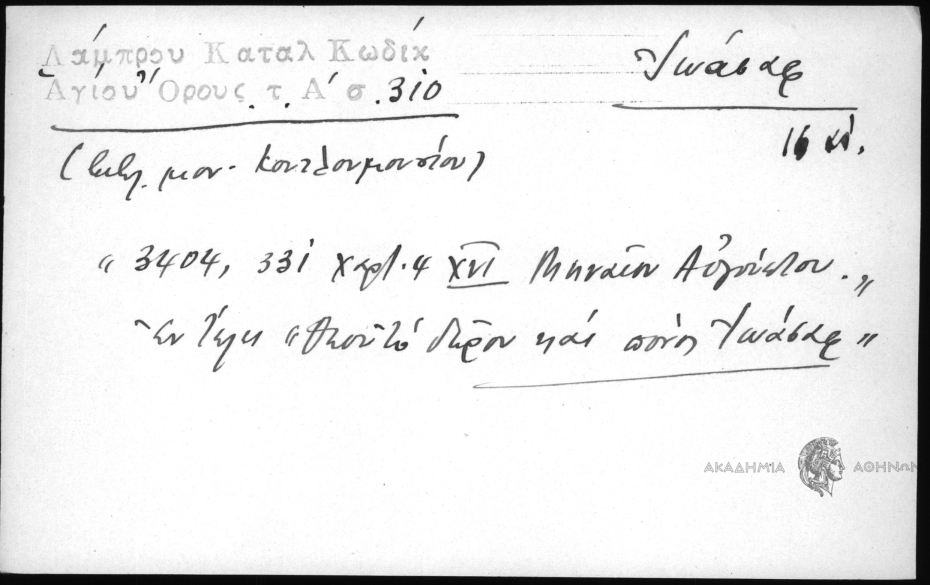 Λάμπρου Καταλ Κωδίκ
Ἁγίου Ὄρους τ. Α' σ. 310
Ἰωάσαφ
16 αἰ.
(βιβλ. μον. Κουτλουμουσίου)
"3404, 331 χαρτ. 4 XVI Μηναῖον Αὐγούστου."
Ἐν τέλει "Θεοῦ τό δῶρον καί πόνος Ἰωάσαφ"
ΑΚΑΔΗΜΙΑ ΑΘΗΝΩΝ